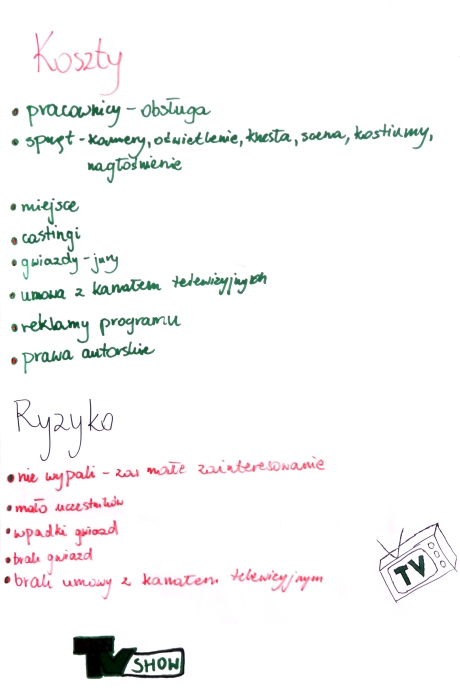 Koszty
• pracownicy - obsługa
• sprzęt - kamery, oświetlenie, krzesła, scena, kostiumy,
nagłośnienie
• miejsce
• castingi
• gwiazdy - jury
• umowa z kanałem telewizyjnych
• reklamy programu
• prawa autorskie
Ryzyko
• nie wypali - za małe zainteresowanie
• mało uczestników
• wpadki gwiazd
• brak gwiazd
• brak umowy z kanałem telewizyjnym
TV
TV SHOW